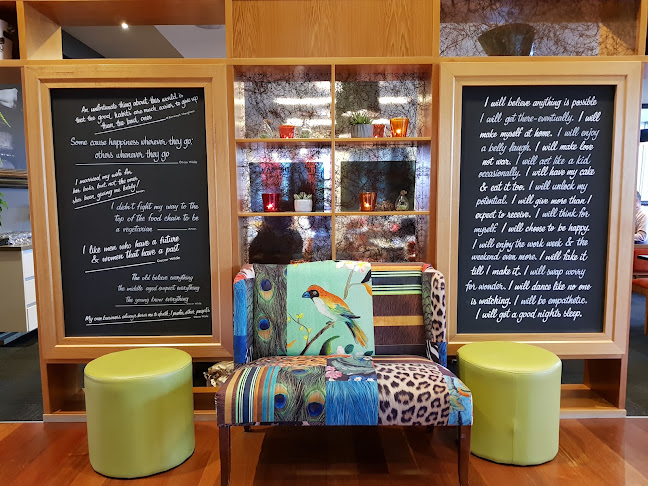 An unfortunate thing about this world is
that the good habits are much easier to give up
than the bad ones
Some cause happiness wherever they go;
others whenever they go
Oscar Wilde
I married my wife for
her looks but not the ones
she's been giving me lately!
I didn't fight my way to the
top of the food chain to be
a vegetarian
I like men who have a future
& women that have a past
Oscar Wilde
The old believe everything
the middle aged suspect everything
the young know everything
My own business always bores me to death, I prefer other people's
I will believe anything is possible
I will get there-eventually. I will
make myself at home. I will enjoy
a belly laugh. I will make love
not war. I will act like a kid
occasionally. I will have my cake
& eat it too. I will unlock my
potential. I will give more than I
expect to receive. I will think for
myself. I will choose to be happy.
I will enjoy the work week & the
weekend even more. I will fake it
till I make it. I will swap worry
for wonder. I will dance like no one
is watching. I will be empathetic.
I will get a good nights sleep.